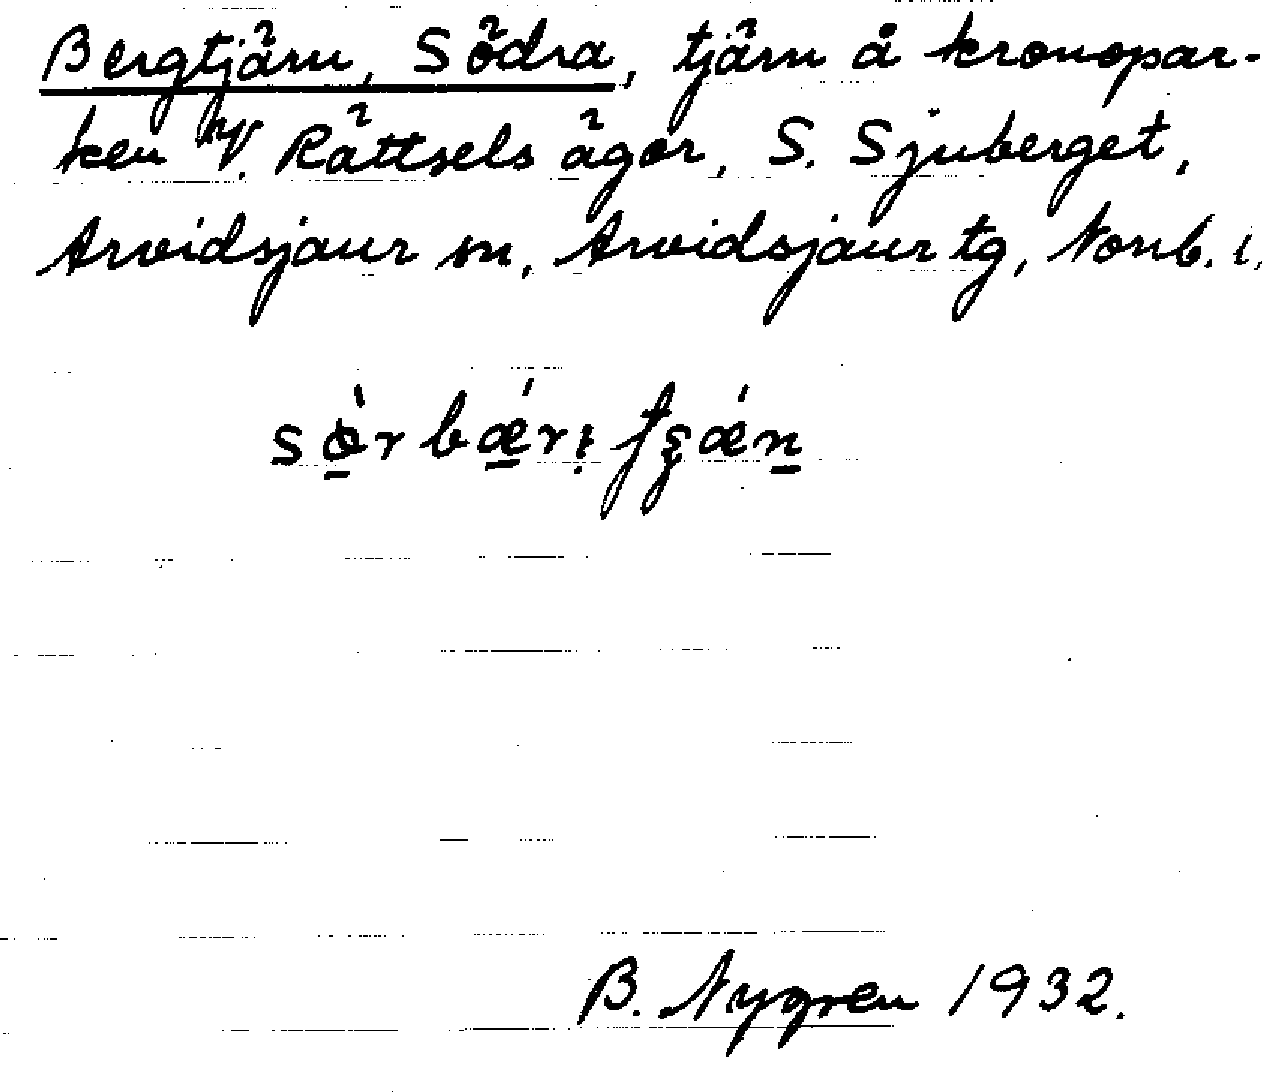 Bergtjärn, Södra, tjärn å kronopar-
ken V. Rättsels ägor, S. Sjuberget,
Arvidsjaur sn, Arvidsjaur tg, Norrb. l.
B. Nygren 1932.